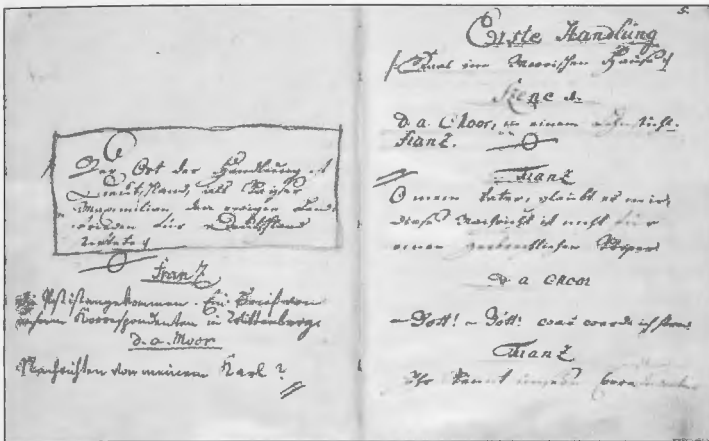 Der Ort der Handlung ist
Deutschland, als Kaiser
Maximilian den ewigen Land-
frieden für Deutschland
Franz
Post ist angekommen. Ein Brief von
unserm Korrespondenten in Wittenberg.
d. a. Moor
Nachrichten von meinem Karl?
5.
Erste Handlung
Saal im Moorischen Hause
Szene 1.
D. a. Moor, in einem
Franz.
Franz
O mein Vater, glaubt es mir
diese Nachricht ist nicht für
einen Körper
D. a. Moor
– Gott! – Gott! was werde ich hören
Franz
Ihr kennt unsern